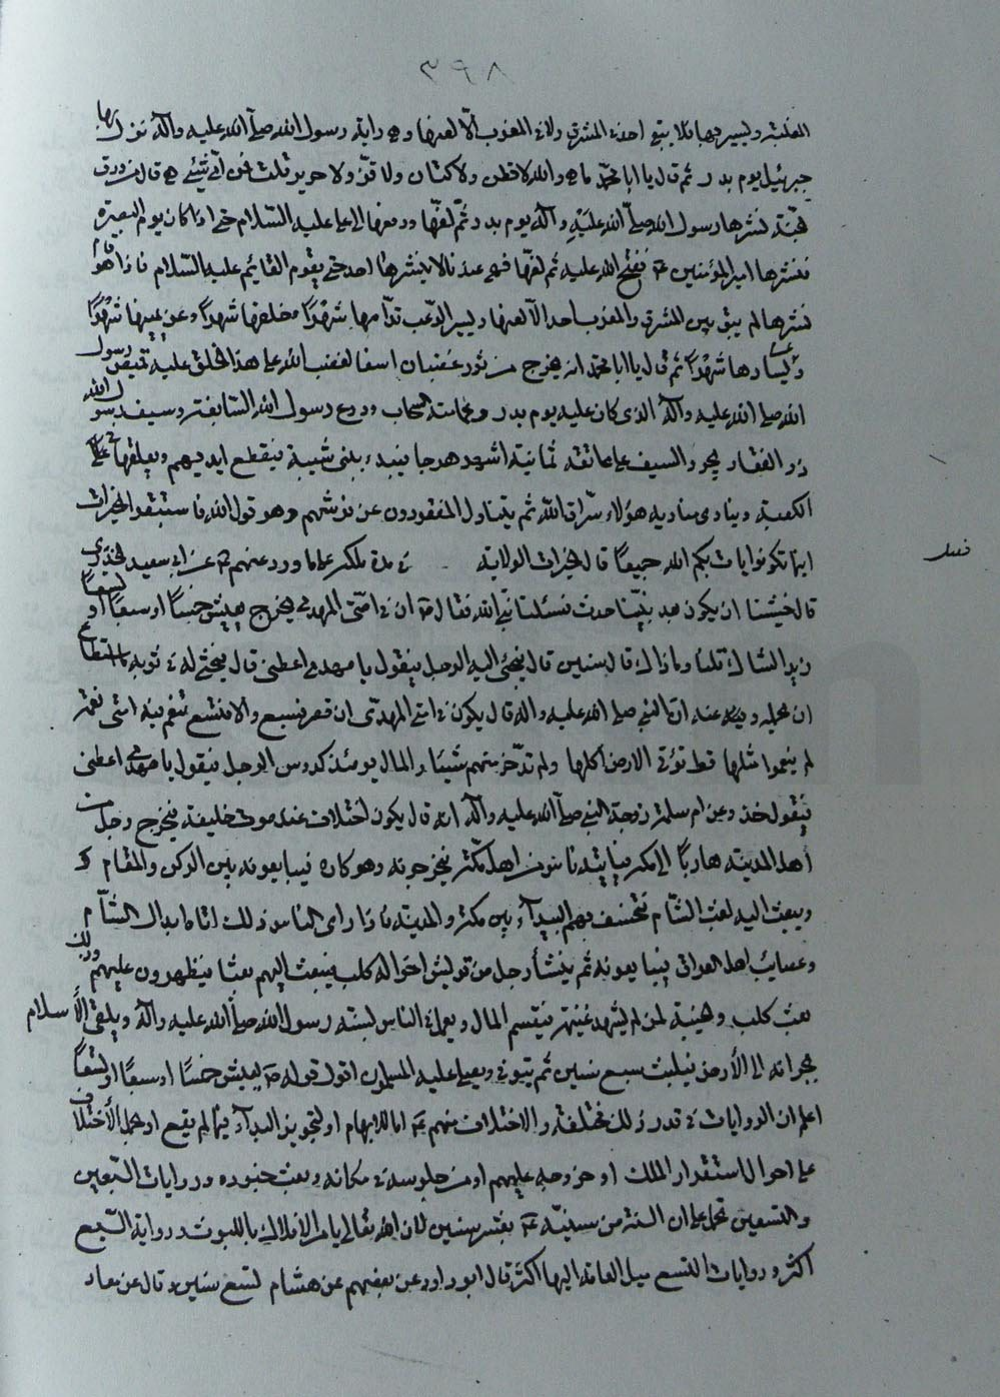 ٨٩٣
المغلبة ويسير بها فلا يبقى احد في المشرق ولا في المغرب الا لعنها وهي راية رسول الله صلى الله عليه وآله نزل بها
جبرئيل يوم بدر ثم قال يا ابا محمد ما هي والله لا قطن ولا كتان ولا قز ولا حرير قلت فمن اي شيء هي قال من ورق
الجنة نشرها رسول الله صلى الله عليه وآله يوم بدر ثم لفها ودفعها الى علي عليه السلام حتى اذا كان يوم البصرة
فنشرها امير المؤمنين ففتح الله عليه ثم لفها فهي عندنا لا ينشرها احد حتى يقوم القائم عليه السلام فاذا هو قام
نشرها لم يبق بين المشرق والمغرب احد الا لعنها ويسير الرعب قدامها شهرًا وخلفها شهرًا وعن يمينها شهرًا
وعن يسارها شهرًا ثم قال يا ابا محمد انه يخرج موتور غضبان اسفا لغضب الله على هذا الخلق عليه قميص رسول
الله صلى الله عليه وآله الذي كان عليه يوم بدر وعمامته السحاب ودرع رسول الله السابغة وسيف رسول الله
ذو الفقار يجرد السيف على عاتقه ثمانية اشهر هرجا فيبدء ببني شيبة فيقطع ايديهم ويعلقها على
الكعبة وينادي مناديه هؤلاء سراق الله ثم يتناول المفقودون عن فرشهم وهو قول الله فاستبقوا الخيرات
اينما تكونوا يات بكم الله جميعًا قال الخيرات الولاية في مدة ملكه على ما ورد عنهم عن ابي سعيد الخدري
فصل
قال خشينا ان يكون بعد نبينا حدث فسئلنا نبي الله فقال ان في امتي المهدي يخرج يعيش خمسًا او سبعًا او تسعًا
زيد الشاك قلنا وما ذاك قال سنين قال فيجئ اليه الرجل فيقول يا مهدي اعطني قال فيحثي له في ثوبه ما استطاع
ان يحمله وعنه ان النبي صلى الله عليه وآله قال يكون في امتي المهدي ان قصر فسبع والا فتسع تنعم فيه امتي نعمة
لم ينعموا مثلها قط تؤتي الارض اكلها ولم تدخر منهم شيئا والمال يومئذ كدوس الرجل فيقول يا مهدي اعطني
فيقول خذ وعن ام سلمة زوجة النبي صلى الله عليه وآله انه قال يكون اختلاف عند موت خليفة فيخرج رجل من
اهل المدينة هاربًا الى مكة فياتيه ناس من اهل مكة فيخرجونه وهو كاره فيبايعونه بين الركن والمقام
ويبعث اليه بعث الشام فتخسف بهم البيداء بين مكة والمدينة فاذا راى الناس ذلك اتاه ابدال الشام
وعصائب اهل العراق فيبايعونه ثم ينشأ رجل من قريش اخواله كلب فيبعث اليهم بعثا فيظهرون عليهم وذلك
بعث كلب وخيبة لمن لم يشهد غنيمة فيقسم المال ويعمل في الناس بسنة رسول الله صلى الله عليه وآله ويلقى الاسلام
بجرانه الى الأرض فيلبث سبع سنين ثم يتوفى ويصلى عليه المسلمون اقول قوله يعيش خمسًا او سبعًا او تسعًا
اعلم ان الروايات في قدر ذلك مختلفة والاختلاف منهم اما للابهام او لتجويز البداء فيما لم يقع او حمل الأختلاف
على احوال استقرار الملك او خروجه عليهم او من جلوسه في مكانه وبعث جنوده وروايات السبعين
والتسعين تحمل على ان السنة من سنينه بعشر سنين لان الله تعالى يامر الافلاك باللبوث ورواية السبع
اكثر وروايات التسع ميل العامة اليها اكثر قال ابو داود عن بعضهم عن هشام تسع سنين وقال عن معاذ